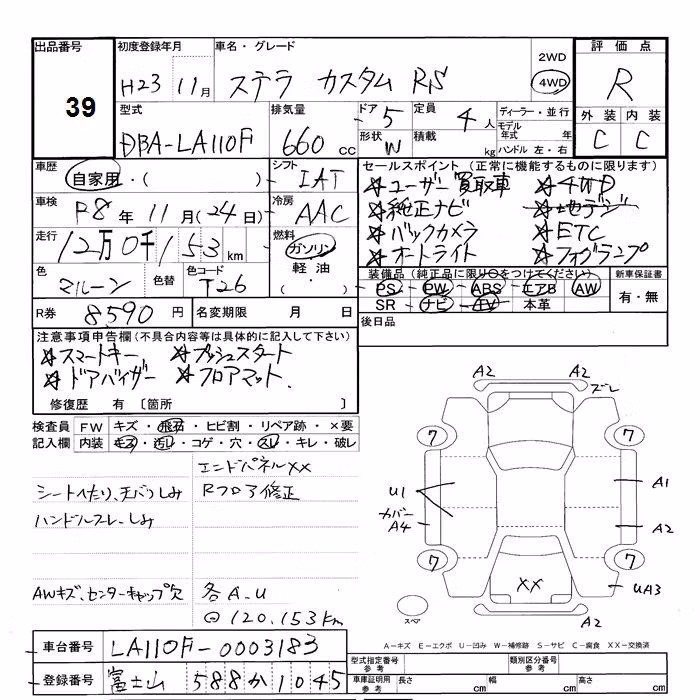 出品番号 初度登録年月 車名・グレード 評価点
39 H23 11月 ステラ カスタム RS 2WD 4WD R
型式 排気量 ドア 5 定員 4人 ディーラー・並行 外装 内装
DBA-LA110F 660cc 形状 W 積載 kg モデル年式 年 ハンドル 左・右 C C
車歴 自家用・( ) シフト IAT セールスポイント(正常に機能するものに限ります)
☆ユーザー買取車 ☆4WD
車検 R8年11月(24日) 冷房 AAC ☆純正ナビ ☆地デジ
走行 12万0千153km 燃料 ガソリン 軽油・( ) ☆バックカメラ ☆ETC
☆オートライト ☆フォグランプ
色 マルーン 色替 色コード T26 装備品(純正品に限り○をつけてください) 新車保証書
PS PW ABS エアB AW 有・無
SR ナビ TV 本革
R券 8590円 名変期限 月 日 後日品
注意事項申告欄(不具合内容等は具体的に記入して下さい)
☆スマートキー ☆プッシュスタート
☆ドアバイザー ☆フロアマット.
修復歴 有〔箇所 〕
検査員 FW キズ・飛石・ヒビ割・リペア跡・×要
記入欄 内装 キズ・汚レ・コゲ・穴・スレ・キレ・破レ
エンドパネルXX
シートへたり、天バリしみ Rフロア修正
ハンドルスレ、しみ
AWキズ、センターキャップ欠 各A.U
⊖120.153Km
A2 A2 ズレ
7 7
U1 A1
カバーA4 A2
7 7
XX UA3
スペア A2
A-キズ E-エクボ U-凹み W-補修跡 S-サビ C-腐食 XX-交換済
車台番号 LA110F-0003183
型式指定番号 参考 類別区分番号 参考
登録番号 富士山 588か1045
車庫証明用 参考 長さ cm 幅 cm 高さ cm